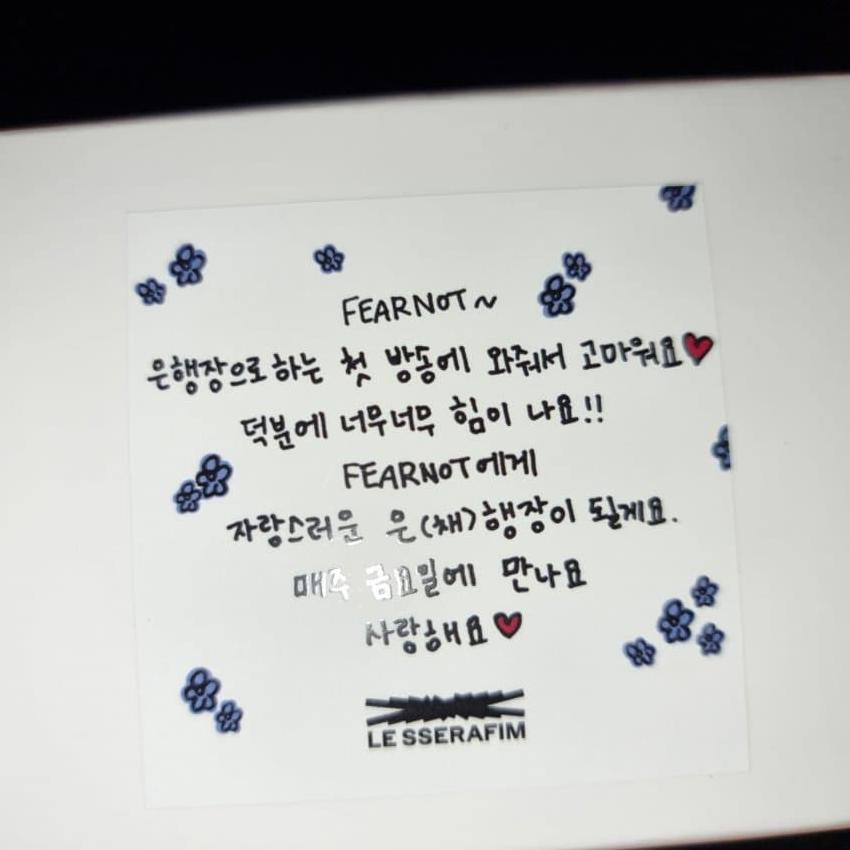 FEARNOT~
은행장으로 하는 첫 방송에 와줘서 고마워요♥
덕분에 너무너무 힘이 나요!!
FEARNOT에게
자랑스러운 은(채)행장이 될게요.
매주 금요일에 만나요
사랑해요♥
LE SSERAFIM